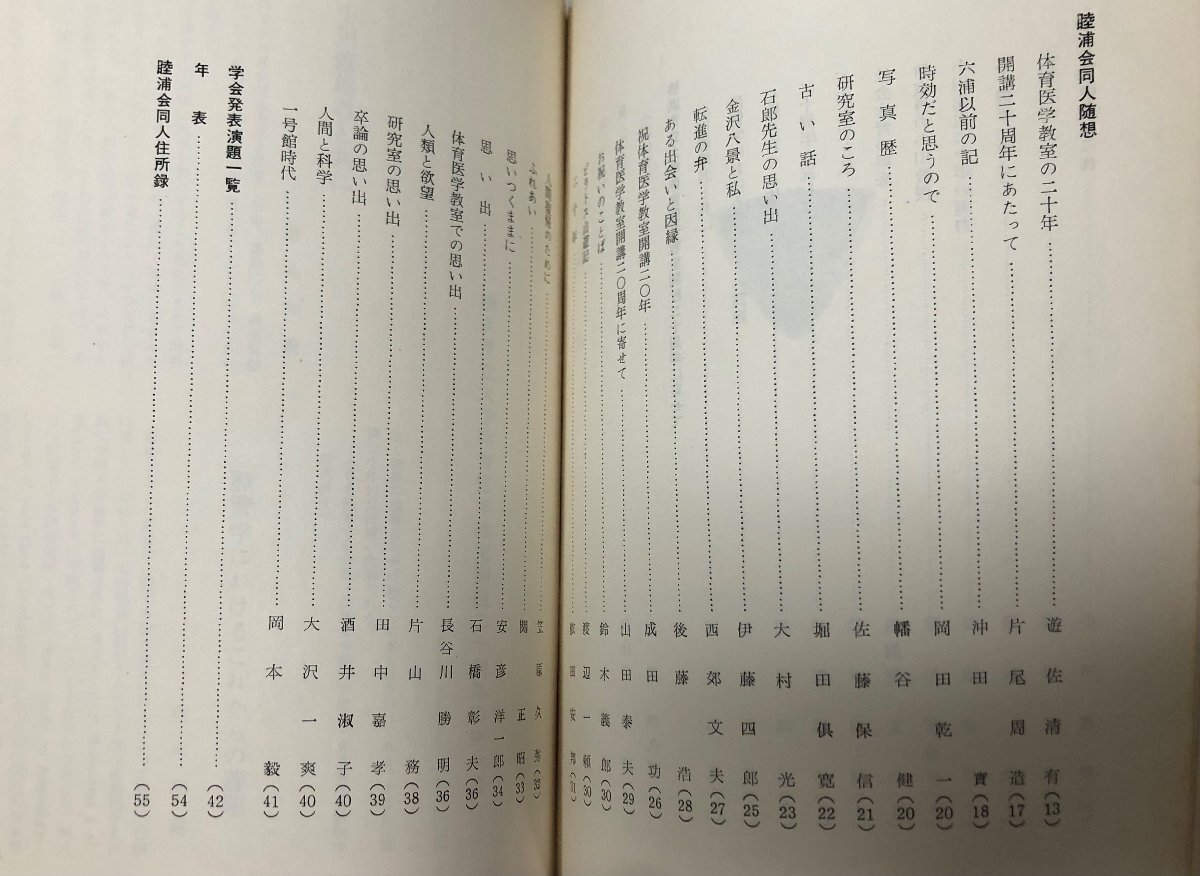 睦浦会同人随想
体育医学教室の二十年……遊佐清有(13)
開講二十周年にあたって……片尾周造(17)
六浦以前の記……沖田實(18)
時効だと思うので……岡田乾一(20)
写真歴……幡谷健(20)
研究室のころ……佐藤保信(21)
古い話……堀田俱寛(22)
石郎先生の思い出……大村光(23)
金沢八景と私……伊藤四郎(25)
転進の弁……西郊文夫(27)
ある出会いと因縁……後藤浩(28)
祝体育医学教室開講二〇年……成田功(26)
体育医学教室開講二〇周年に寄せて……山田泰夫(29)
お祝いのことば……鈴木義郎(30)
渡辺一頼(30)
田安邦(31)
人間復權のために……笠原久弥(32)
ふれあい……関正昭(33)
思いつくままに……安彦洋一郎(34)
思い出……石橋彰夫(36)
体育医学教室での思い出……長谷川勝明(36)
人類と欲望……片山務(38)
研究室の思い出……田中嘉孝(39)
卒論の思い出……酒井淑子(40)
人間と科学……大沢一爽(40)
一号館時代……岡本毅(41)
学会発表演題一覧……(42)
年表……(54)
睦浦会同人住所録……(55)